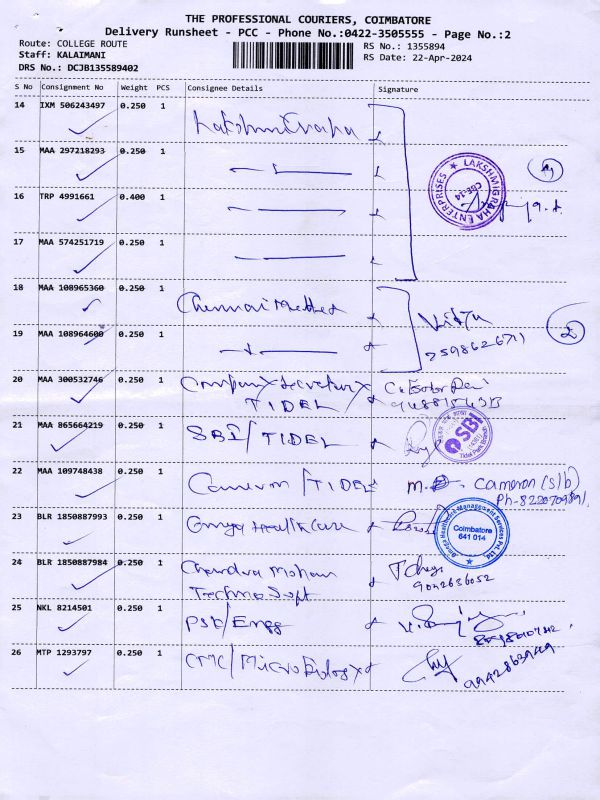 THE PROFESSIONAL COURIERS, COIMBATORE
Delivery Runsheet - PCC - Phone No.:0422-3505555 - Page No.:2
Route: COLLEGE ROUTE RS No.: 1355894
Staff: KALAIMANI RS Date: 22-Apr-2024
DRS No.: DCJB135589402
S No Consignment No Weight PCS Consignee Details Signature
14 IXM 506243497 0.250 1
15 MAA 297218293 0.250 1
LAKSHMIGRAHA ENTERPRISES
CBE-14
16 TRP 4991661 0.400 1
17 MAA 574251719 0.250 1
18 MAA 108965360 0.250 1 Chennai
19 MAA 108964600 0.250 1
2
20 MAA 300532746 0.250 1 Company Secretary
TIDEL
21 MAA 865664219 0.250 1 SBI/TIDEL
SBI
22 MAA 109748438 0.250 1 Cameron/TIDEL Cameron (slb)
23 BLR 1850887993 0.250 1 Omega Healthcare
Omega Healthcare Management Services Pvt. Ltd.
Coimbatore
641 014
24 BLR 1850887984 0.250 1 Chandra Mohan
Techno Soft 9042636052
25 NKL 8214501 0.250 1 PSG/Engg
26 MTP 1293797 0.250 1 CMC/Microbiology